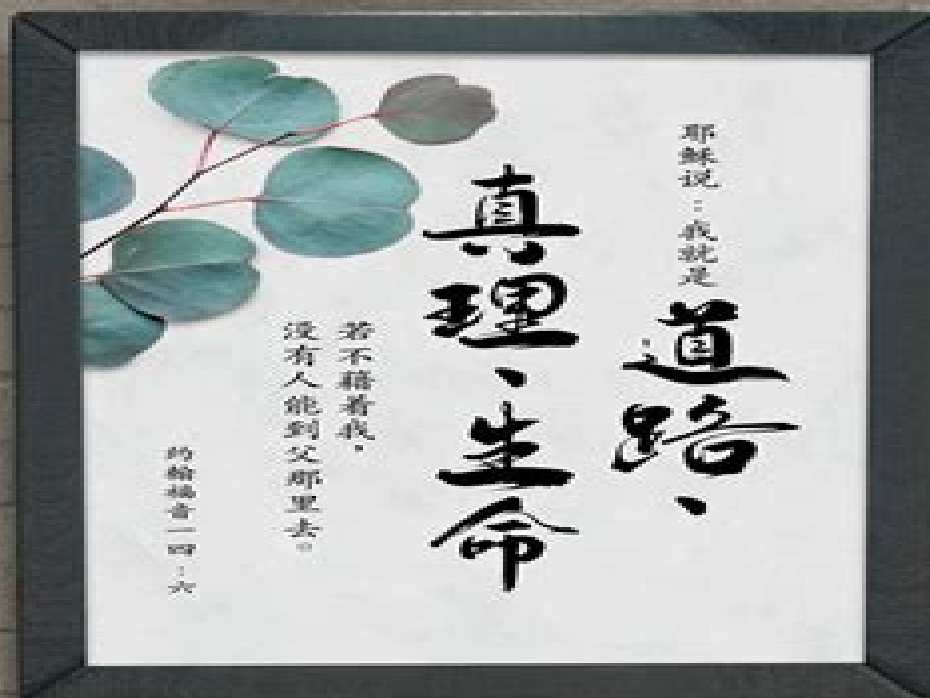 耶稣说：我就是
道路、
真理、生命
若不藉着我，
没有人能到父那里去。
约翰福音一四：六